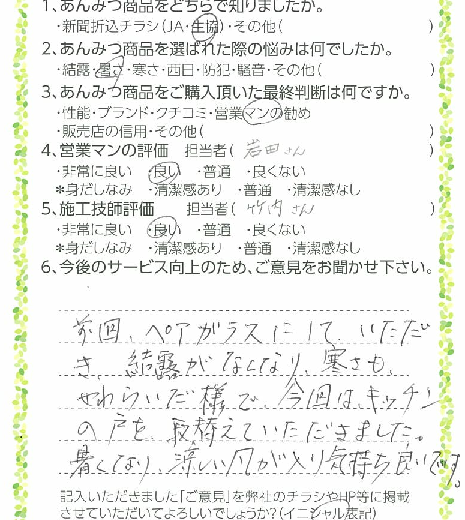 1、あんみつ商品をどちらで知りましたか。
・新聞折込チラシ(JA・生協)・その他(　　　)
2、あんみつ商品を選ばれた際の悩みは何でしたか。
・結露・暑さ・寒さ・西日・防犯・騒音・その他(　　　)
3、あんみつ商品をご購入頂いた最終判断は何ですか。
・性能・ブランド・クチコミ・営業マンの勧め
・販売店の信用・その他(　　　)
4、営業マンの評価　担当者(岩田さん　)
・非常に良い　・良い　・普通　・良くない
*身だしなみ　・清潔感あり　・普通　・清潔感なし
5、施工技師評価　担当者(竹内さん　)
・非常に良い　・良い　・普通　・良くない
*身だしなみ　・清潔感あり　・普通　・清潔感なし
6、今後のサービス向上のため、ご意見をお聞かせ下さい。
前回、ペアガラスにして、いただ
き、結露がなくなり、寒さも、
やわらいだ様で、今回は、キッチン
の戸を、取替えていただきました。
暑くなり、涼しい風が入り気持ち良いです。
記入いただきました「ご意見」を弊社のチラシやHP等に掲載
させていただいてよろしいでしょうか?(イニシャル表記)